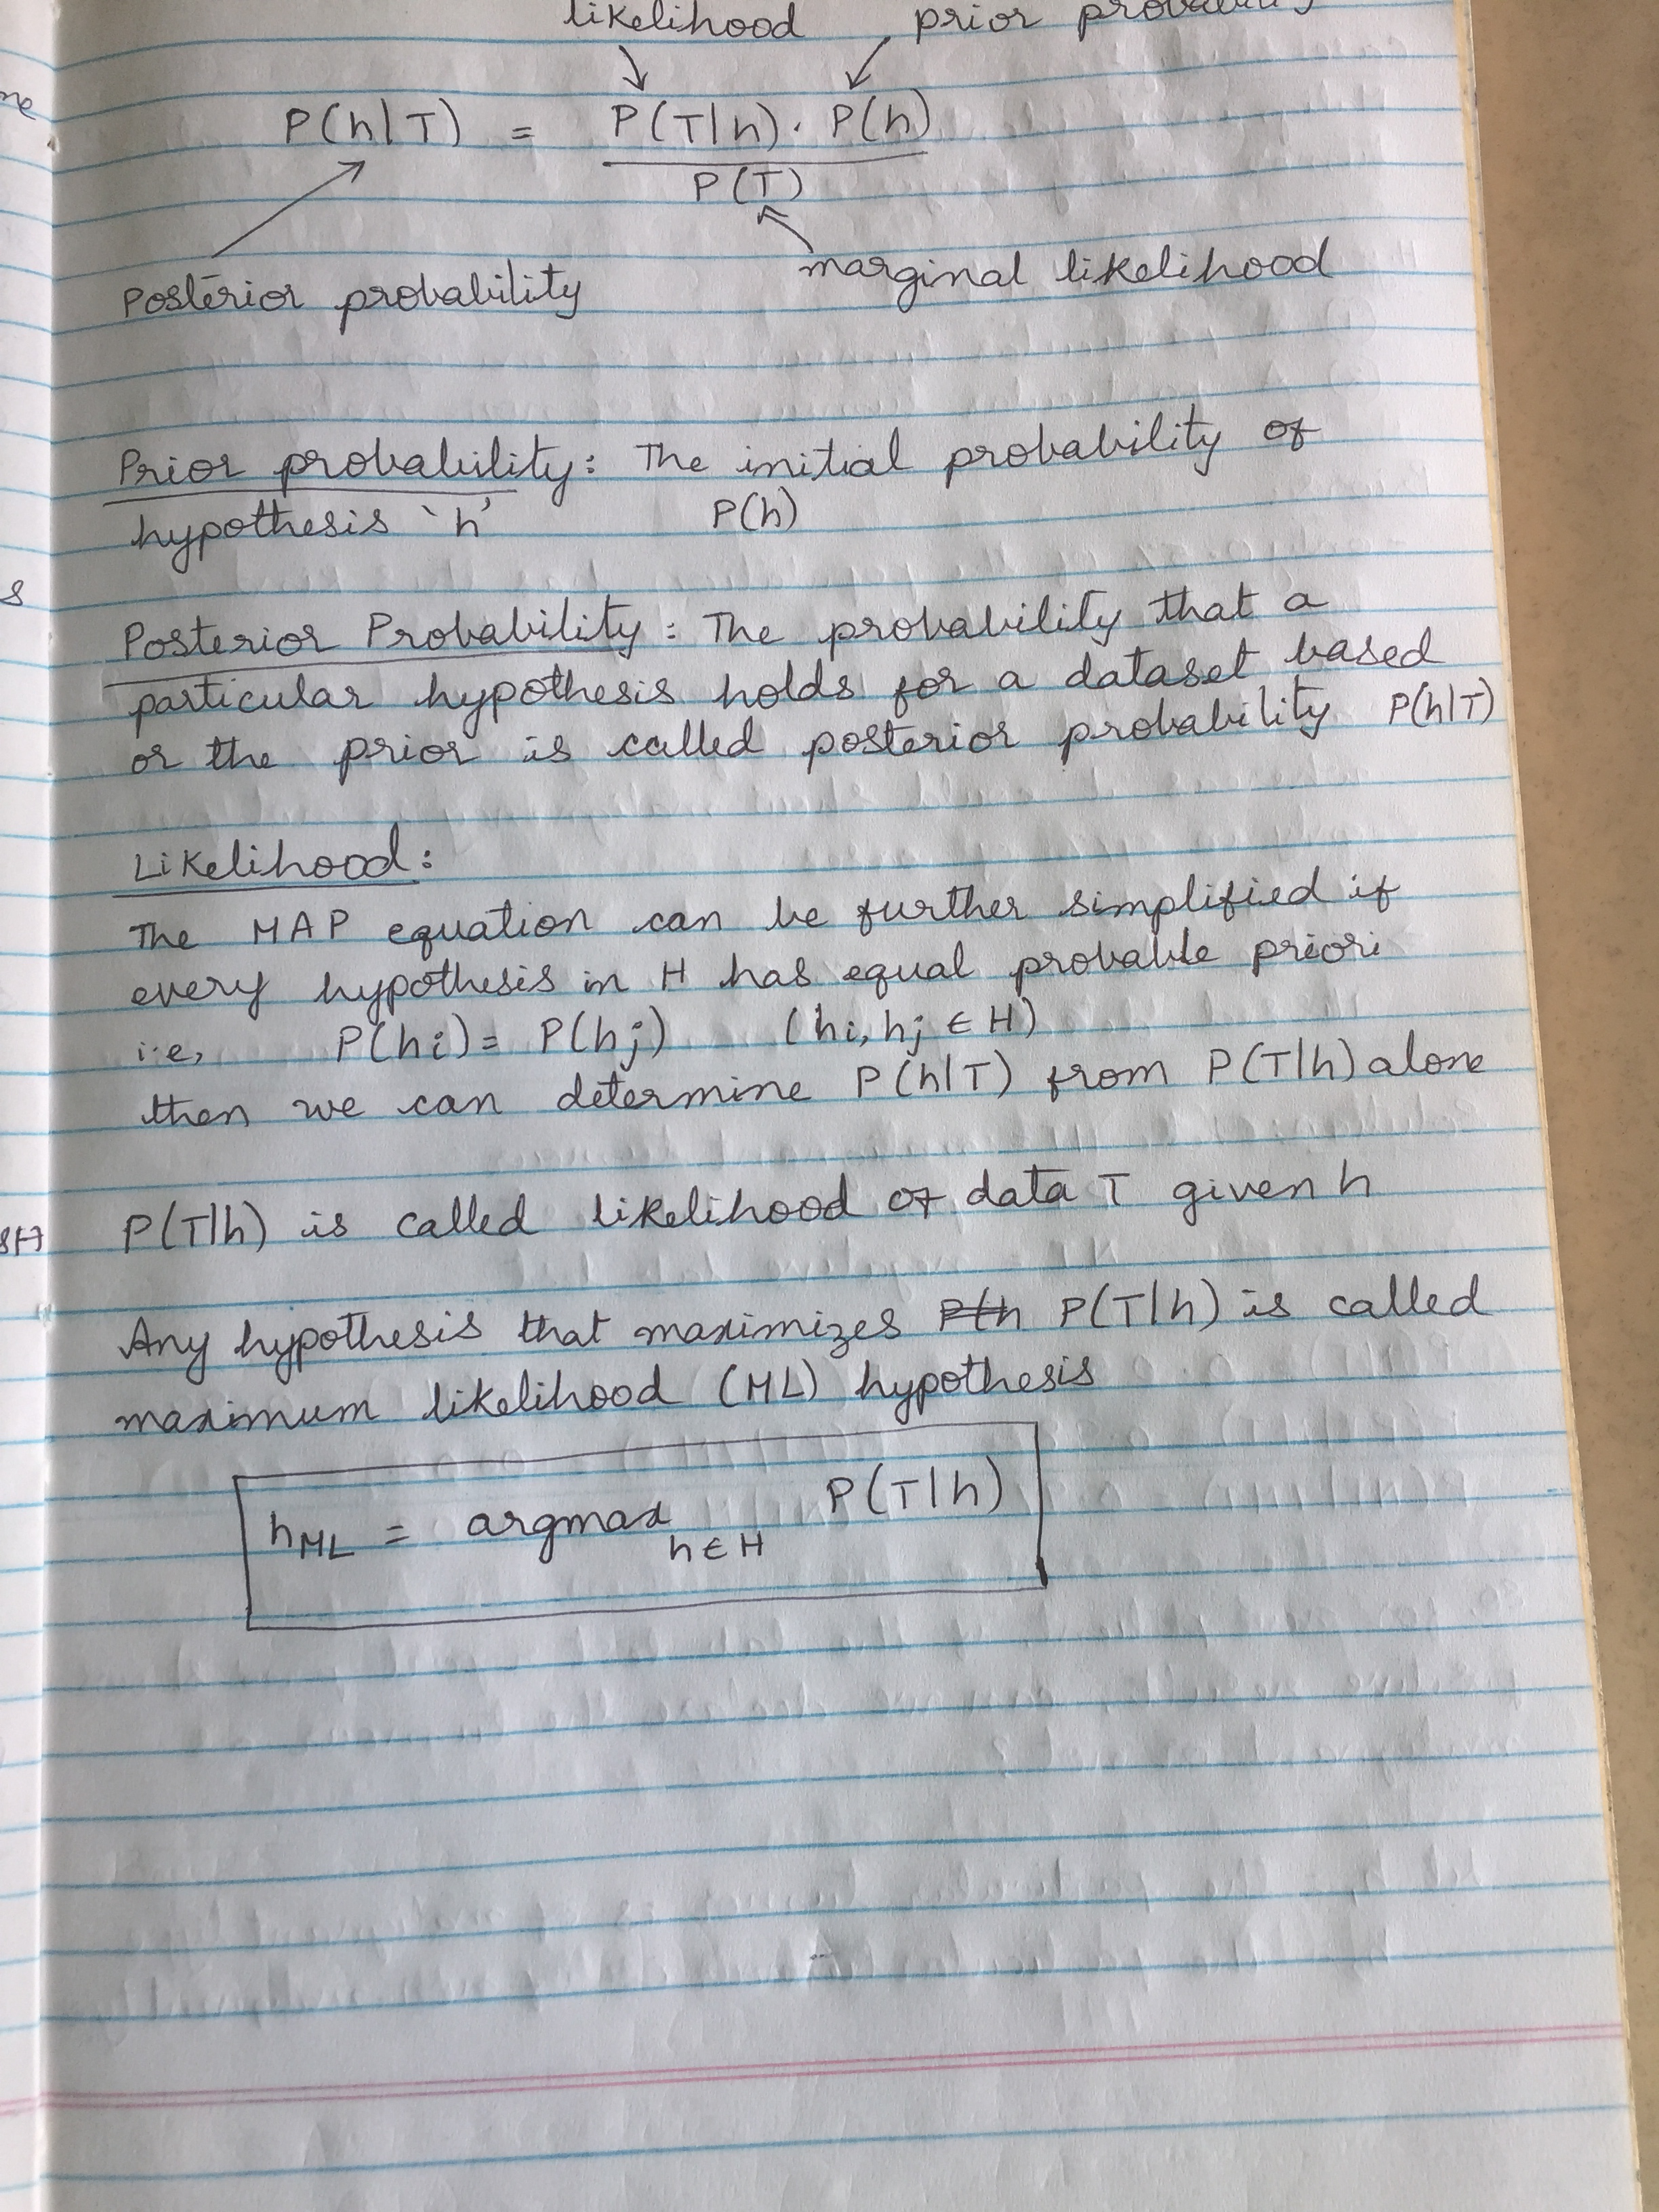 likelihood prior probability
P(h|T) = P(T|h) . P(h)
P(T)
Posterior probability
marginal likelihood
Prior probability : The initial probability of
hypothesis 'h' P(h)
Posterior Probability : The probability that a
particular hypothesis holds for a dataset based
or the prior is called posterior probability P(h|T)
Likelihood :
The MAP equation can be further simplified if
every hypothesis in H has equal probable priori
i.e, P(hi) = P(hj) (hi, hj ∈ H)
then we can determine P(h|T) from P(T|h) alone
P(T|h) is called likelihood of data T given h
Any hypothesis that maximizes P(T|h) is called
maximum likelihood (ML) hypothesis
hML = argmax P(T|h)
h∈H